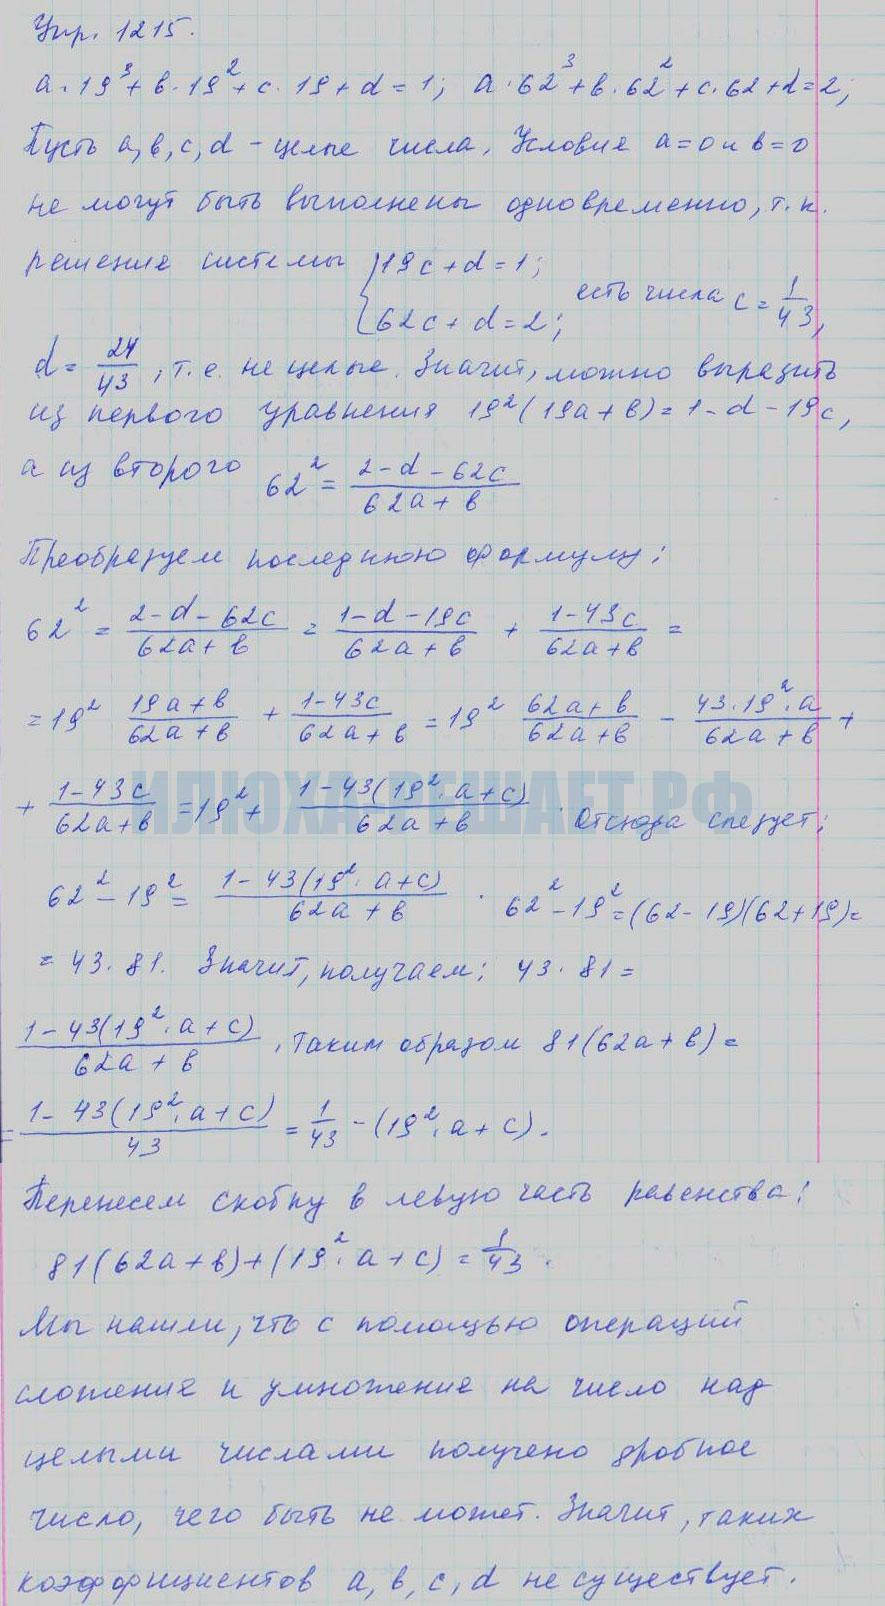 Упр. 1215.
a·19³+в·19²+c·19+d=1; a·62³+в·62²+c·62+d=2;
Пусть a,в,c,d - целые числа. Условия a=0 и в=0
не могут быть выполнены одновременно, т.к.
решение системы {19c+d=1; 62c+d=2; есть числа c=1/43,
d=24/43, т.е. не целые. Значит, можно выразить
из первого уравнения 19²(19a+в)=1-d-19c,
а из второго 62²=(2-d-62c)/(62a+в)
Преобразуем последнюю формулу:
62²=(2-d-62c)/(62a+в)=(1-d-19c)/(62a+в)+(1-43c)/(62a+в)=
=19² (19a+в)/(62a+в)+(1-43c)/(62a+в)=19² (62a+в)/(62a+в)-(43·19²·a)/(62a+в)+
+(1-43c)/(62a+в)=19²+(1-43(19²·a+c))/(62a+в). Отсюда следует:
ИЛЮХА РЕШАЕТ.РФ
62²-19²=(1-43(19²·a+c))/(62a+в). 62²-19²=(62-19)(62+19)=
=43·81. Значит, получаем: 43·81=
(1-43(19²·a+c))/(62a+в), таким образом 81(62a+в)=
=(1-43(19²·a+c))/43=1/43-(19²·a+c).
Перенесем скобку в левую часть равенства:
81(62a+в)+(19²·a+c)=1/43.
Мы нашли, что с помощью операций
сложения и умножения на число над
целыми числами получено дробное
число, чего быть не может. Значит, таких
коэффициентов a,в,c,d не существует.